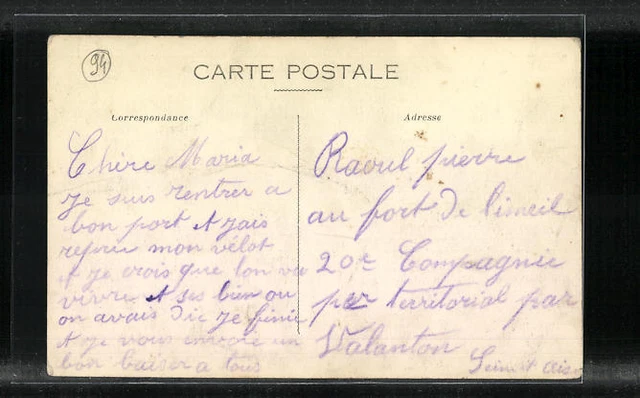 94
CARTE POSTALE
Correspondance
Adresse
Chère Maria
Je suis rentrer a
bon port et jais
mon vélot
et je crois que lon va
vivre et ses bien ou
on avais dit Je finie
et je vous envoie un
bon baiser a tous
Raoul pierre
au fort de limeil
20e Compagnie
territorial par
Valanton
Seine et oise